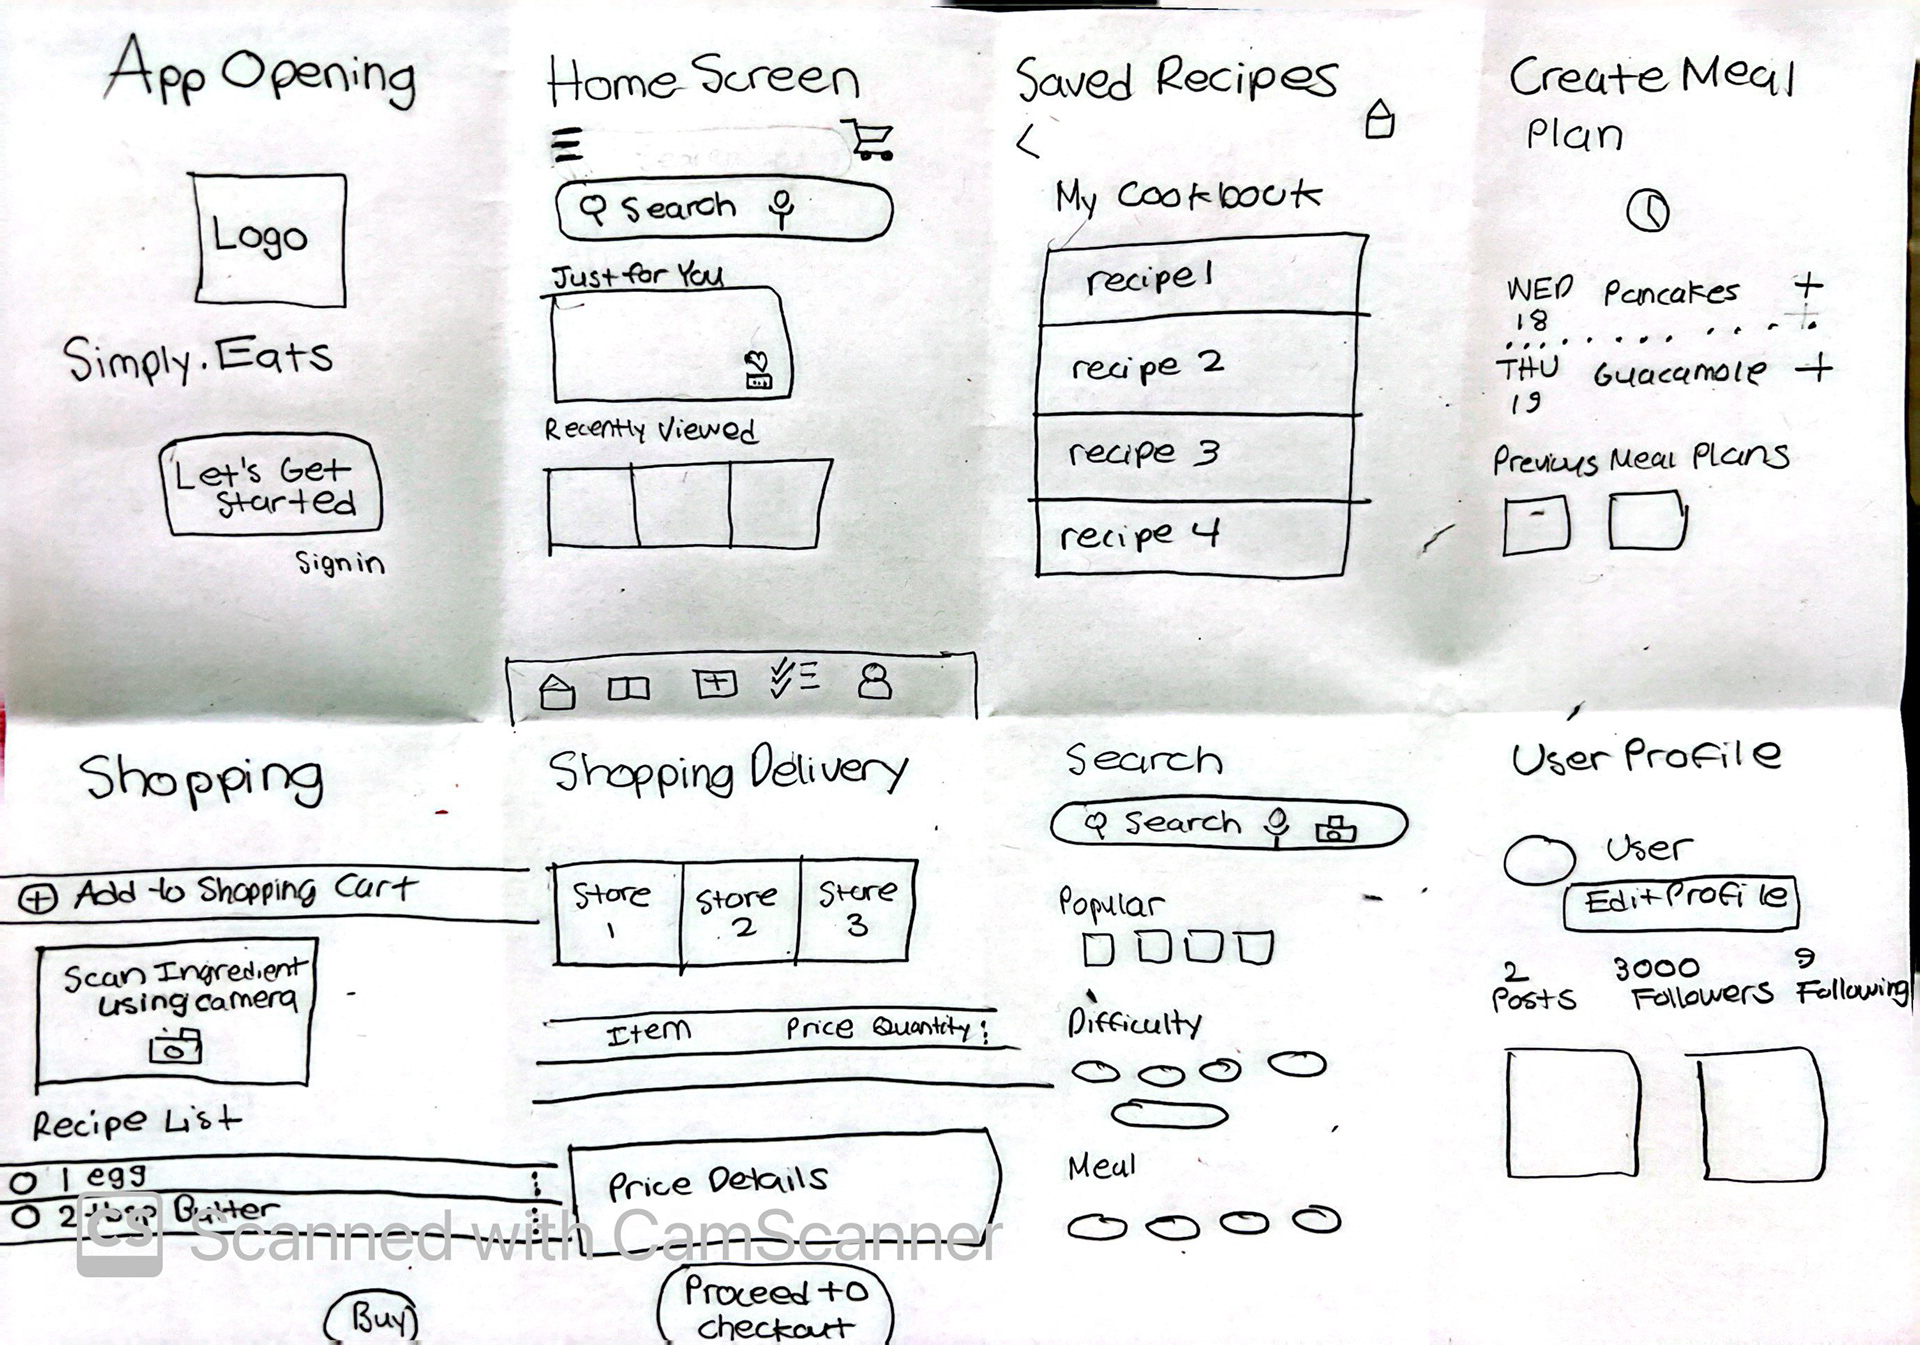 App Opening
Logo
Simply.Eats
Let's Get
Started
Sign in
Home Screen
Search
Just for You
Recently Viewed
Saved Recipes
<
My Cookbook
recipe 1
recipe 2
recipe 3
recipe 4
Create Meal
Plan
WED Pancakes +
18
THU Guacamole +
19
Previous Meal Plans
Shopping
+ Add to Shopping Cart
Scan Ingredient
using camera
Recipe List
1 egg
2 tbsp Butter
Buy
Shopping Delivery
Store
1
Store
2
Store
3
Item Price Quantity
Price Details
Proceed to
checkout
Search
Search
Popular
Difficulty
Meal
User Profile
User
Edit Profile
2
Posts
3000
Followers
9
Following
CS Scanned with CamScanner